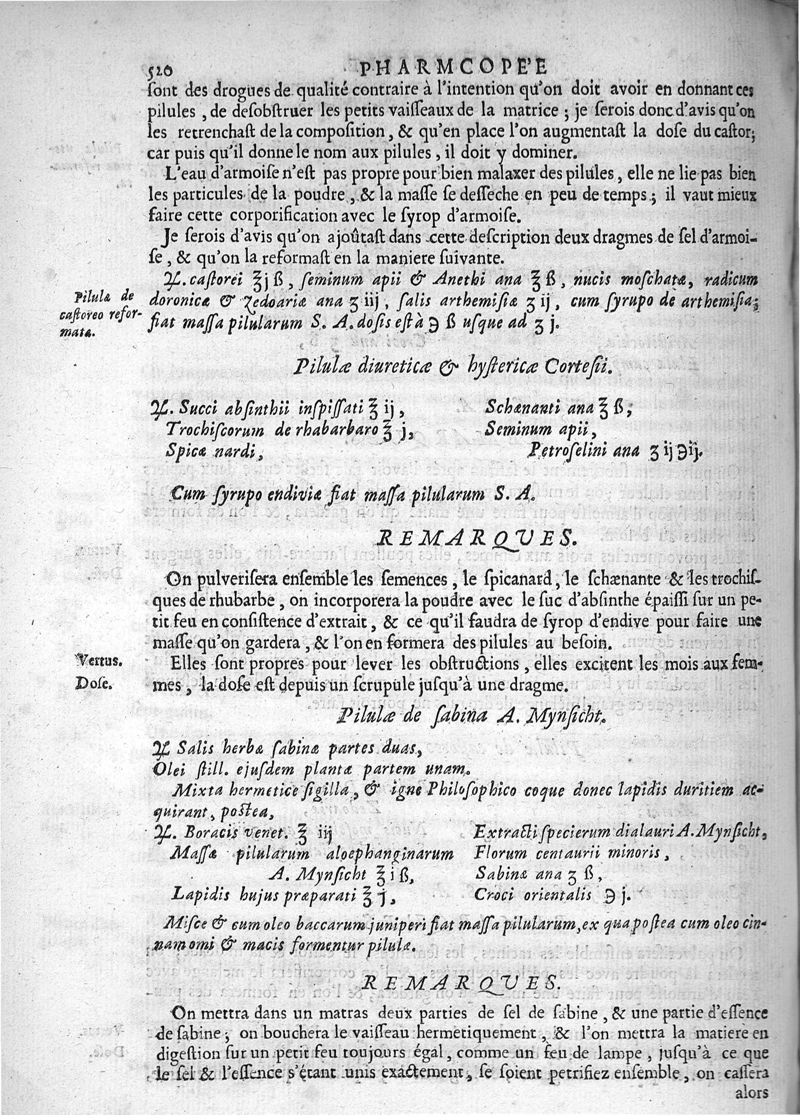 520 PHARMCOPE'E
sont des drogues de qualité contraire à l'intention qu'on doit avoir en donnant ces
pilules, de desobstruer les petits vaisseaux de la matrice; je serois donc d'avis qu'on
les retrenchast de la composition, & qu'en place l'on augmentast la dose du castor;
car puis qu'il donne le nom aux pilules, il doit y dominer.
L'eau d'armoise n'est pas propre pour bien malaxer des pilules, elle ne lie pas bien
les particules de la poudre, & la masse se desseche en peu de temps; il vaut mieux
faire cette corporification avec le syrop d'armoise.
Je serois d'avis qu'on ajoûtast dans cette description deux dragmes de sel d'armoi-
se, & qu'on la reformast en la maniere suivante.
Pilulæ de
castoreo refor-
matæ.
♃. castorei ℥j ß, seminum apii & Anethi ana ℥ ß, nucis moschatæ, radicum
doronicæ & Zedoariæ ana ʒ iij, salis arthemisiæ ʒ ij, cum syrupo de arthemisia;
fiat massa pilularum S. A. dosis est à ℈ ß usque ad ʒ j.
Pilulæ diureticæ & hystericæ Cortesii.
♃. Succi absinthii inspissati ℥ ij,
Trochiscorum de rhabarbaro ℥ j,
Spicæ nardi,
Schænanti ana ℥ ß;
Seminum apii,
Petroselini ana ʒ ij ℈ij.
Cum syrupo endiviæ fiat massa pilularum S. A.
REMARQUES.
On pulverisera ensemble les semences, le spicanard, le schænante & les trochis-
ques de rhubarbe, on incorporera la poudre avec le suc d'absinthe épaissi sur un pe-
tit feu en consistence d'extrait, & ce qu'il faudra de syrop d'endive pour faire une
masse qu'on gardera, & l'on en formera des pilules au besoin.
Vertus.
Dose.
Elles sont propres pour lever les obstructions, elles excitent les mois aux fem-
mes, la dose est depuis un scrupule jusqu'à une dragme.
Pilulæ de sabina A. Mynsicht.
♃ Salis herbæ sabinæ partes duas,
Olei still. ejusdem plantæ partem unam.
Mixta hermetice sigilla, & igne Philosophico coque donec lapidis duritiem ac-
quirant, postea,
♃. Boracis venet. ℥ iij
Massæ pilularum aloephanginarum
A. Mynsicht ℥ i ß,
Lapidis hujus præparati ℥ j,
Extracti specierum dialauri A. Mynsicht,
Florum centaurii minoris,
Sabinæ ana ʒ ß,
Croci orientalis ℈ j.
Misce & cum oleo baccarum juniperi fiat massa pilularum, ex qua postea cum oleo cin-
namomi & macis formentur pilulæ.
REMARQUES.
On mettra dans un matras deux parties de sel de sabine, & une partie d'essence
de sabine; on bouchera le vaisseau hermetiquement, & l'on mettra la matiere en
digestion sur un petit feu toujours égal, comme un feu de lampe, jusqu'à ce que
le sel & l'essence s'étant unis exactement, se soient petrifiez ensemble, on cassera
alors